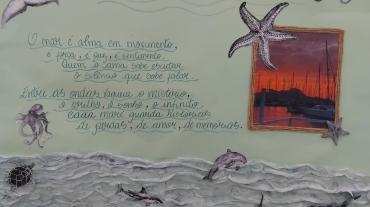 O mar é alma em movimento,
é força, é que, é sentimento.
Quem o ama sabe escutar
o silêncio que sabe falar.
Entre as ondas o mistério,
o brilho, o sonho, o infinito
cada maré guarda histórias
de perdas, de amor, de memórias.